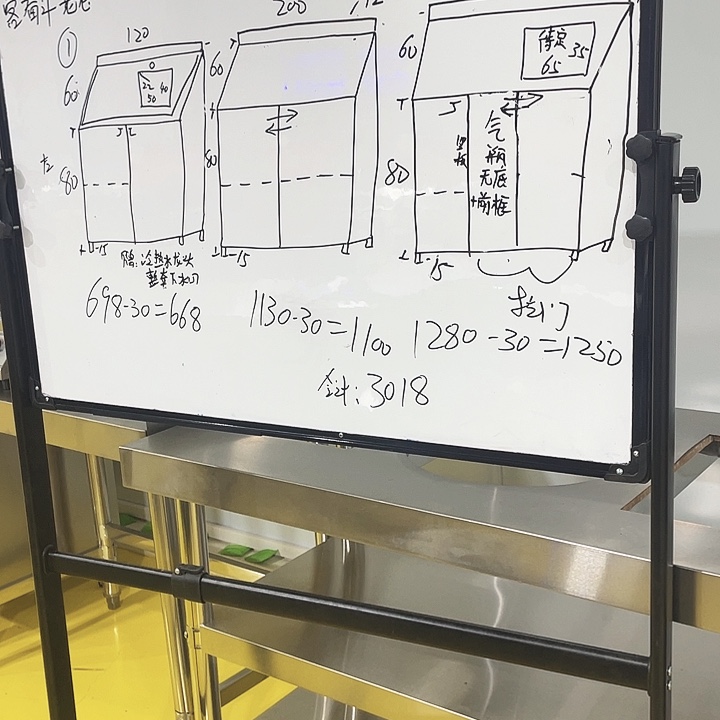 ①
120
60
22 40
50
80
15
配:冷热水龙头
整套下水口
698-30=668
200
60
80
15
1130-30=1100
60
待定 35
65
80
气瓶无底
+前框
15
拉门
1280-30=1250
合计:3018